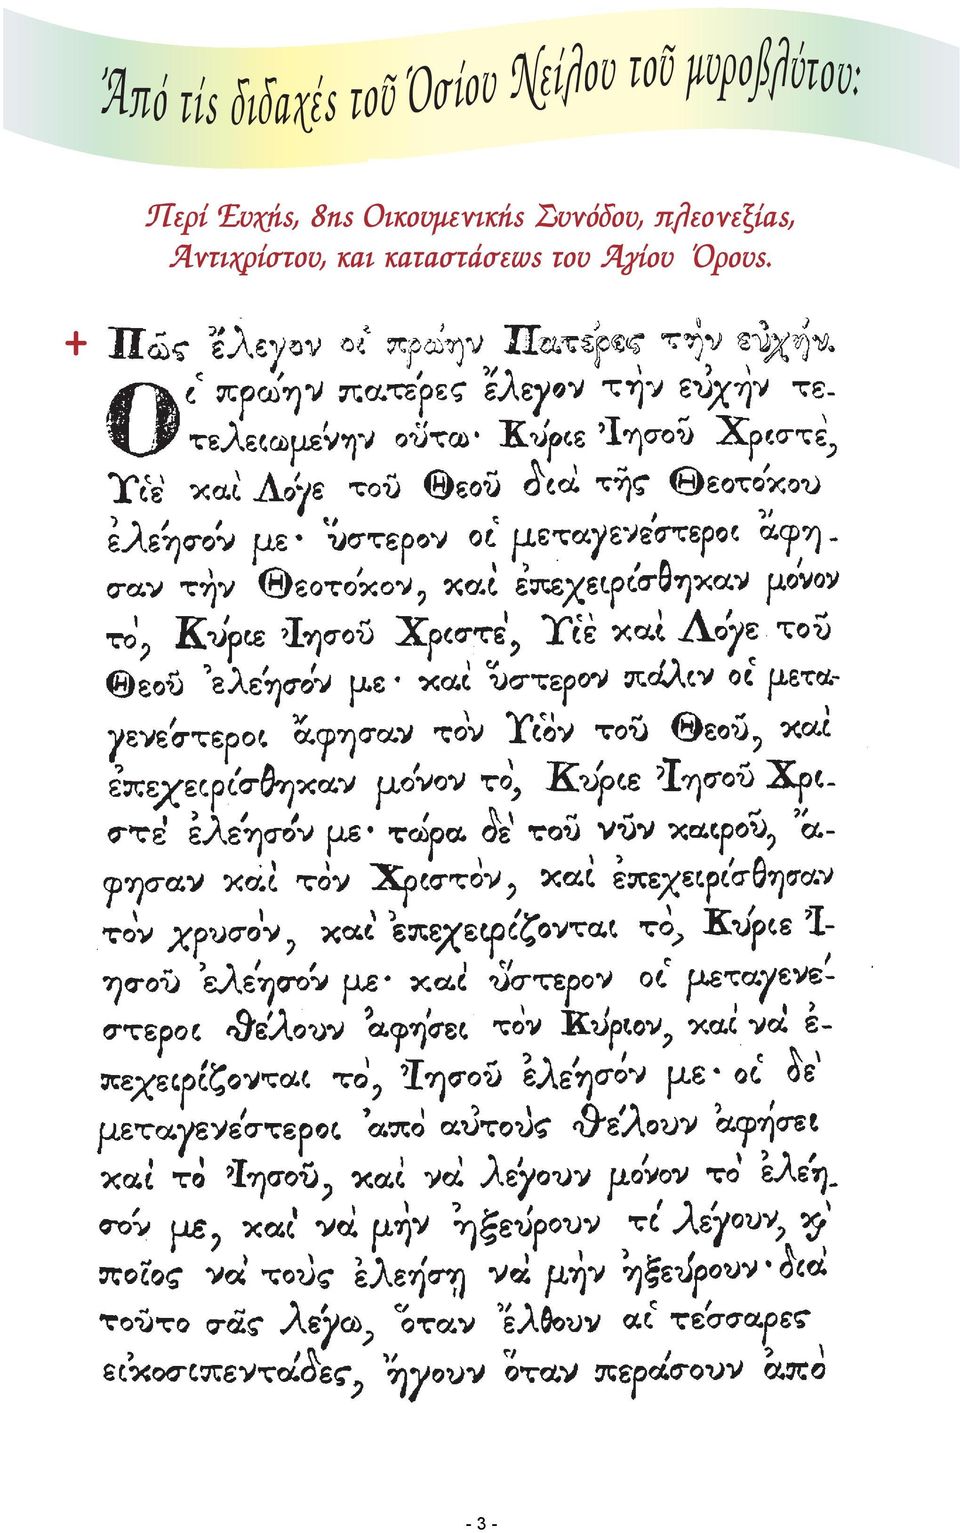 Ἀπό τίς διδαχές τοῦ Ὁσίου Νείλου τοῦ μυροβλύτου:
Περί Ευχής, 8ης Οικουμενικής Συνόδου, πλεονεξίας,
Αντιχρίστου, και καταστάσεως του Αγίου Όρους.
+ Πῶς ἔλεγον οἱ πρώην Πατέρες τήν εὐχήν.
Οἱ πρώην πατέρες ἔλεγον τὴν εὐχὴν τε-
τελειωμένην οὕτω· Κύριε Ἰησοῦ Χριστέ,
Υἱὲ καὶ Λόγε τοῦ Θεοῦ διὰ τῆς Θεοτόκου
ἐλέησόν με· ὕστερον οἱ μεταγενέστεροι ἄφη-
σαν τὴν Θεοτόκον, καὶ ἐπεχειρίσθηκαν μόνον
τὸ, Κύριε Ἰησοῦ Χριστὲ, Υἱὲ καὶ Λόγε τοῦ
Θεοῦ ἐλέησόν με· καὶ ὕστερον πάλιν οἱ μετα-
γενέστεροι ἄφησαν τὸν Υἱὸν τοῦ Θεοῦ, καὶ
ἐπεχειρίσθηκαν μόνον τὸ, Κύριε Ἰησοῦ Χρι-
στὲ ἐλέησόν με· τώρα δὲ τοῦ νῦν καιροῦ, ἄ-
φησαν καὶ τὸν Χριστὸν, καὶ ἐπεχειρίσθησαν
τὸν χρυσὸν, καὶ ἐπεχειρίζονται τὸ, Κύριε Ἰ-
ησοῦ ἐλέησόν με· καὶ ὕστερον οἱ μεταγενέ-
στεροι θέλουν ἀφήσει τὸν Κύριον, καὶ νὰ ἐ-
πεχειρίζονται τὸ, Ἰησοῦ ἐλέησόν με· οἱ δὲ
μεταγενέστεροι ἀπὸ αὐτοὺς θέλουν ἀφήσει
καὶ τὸ Ἰησοῦ, καὶ νὰ λέγουν μόνον τὸ ἐλέη-
σόν με, καὶ νὰ μὴν ἠξεύρουν τί λέγουν, ϗ
ποῖος νὰ τοὺς ἐλεήσῃ νὰ μὴν ἠξεύρουν· διὰ
τοῦτο σᾶς λέγω, ὅταν ἔλθουν αἱ τέσσαρες
εἰκοσιπεντάδες, ἤγουν ὅταν περάσουν ἀπὸ
- 3 -